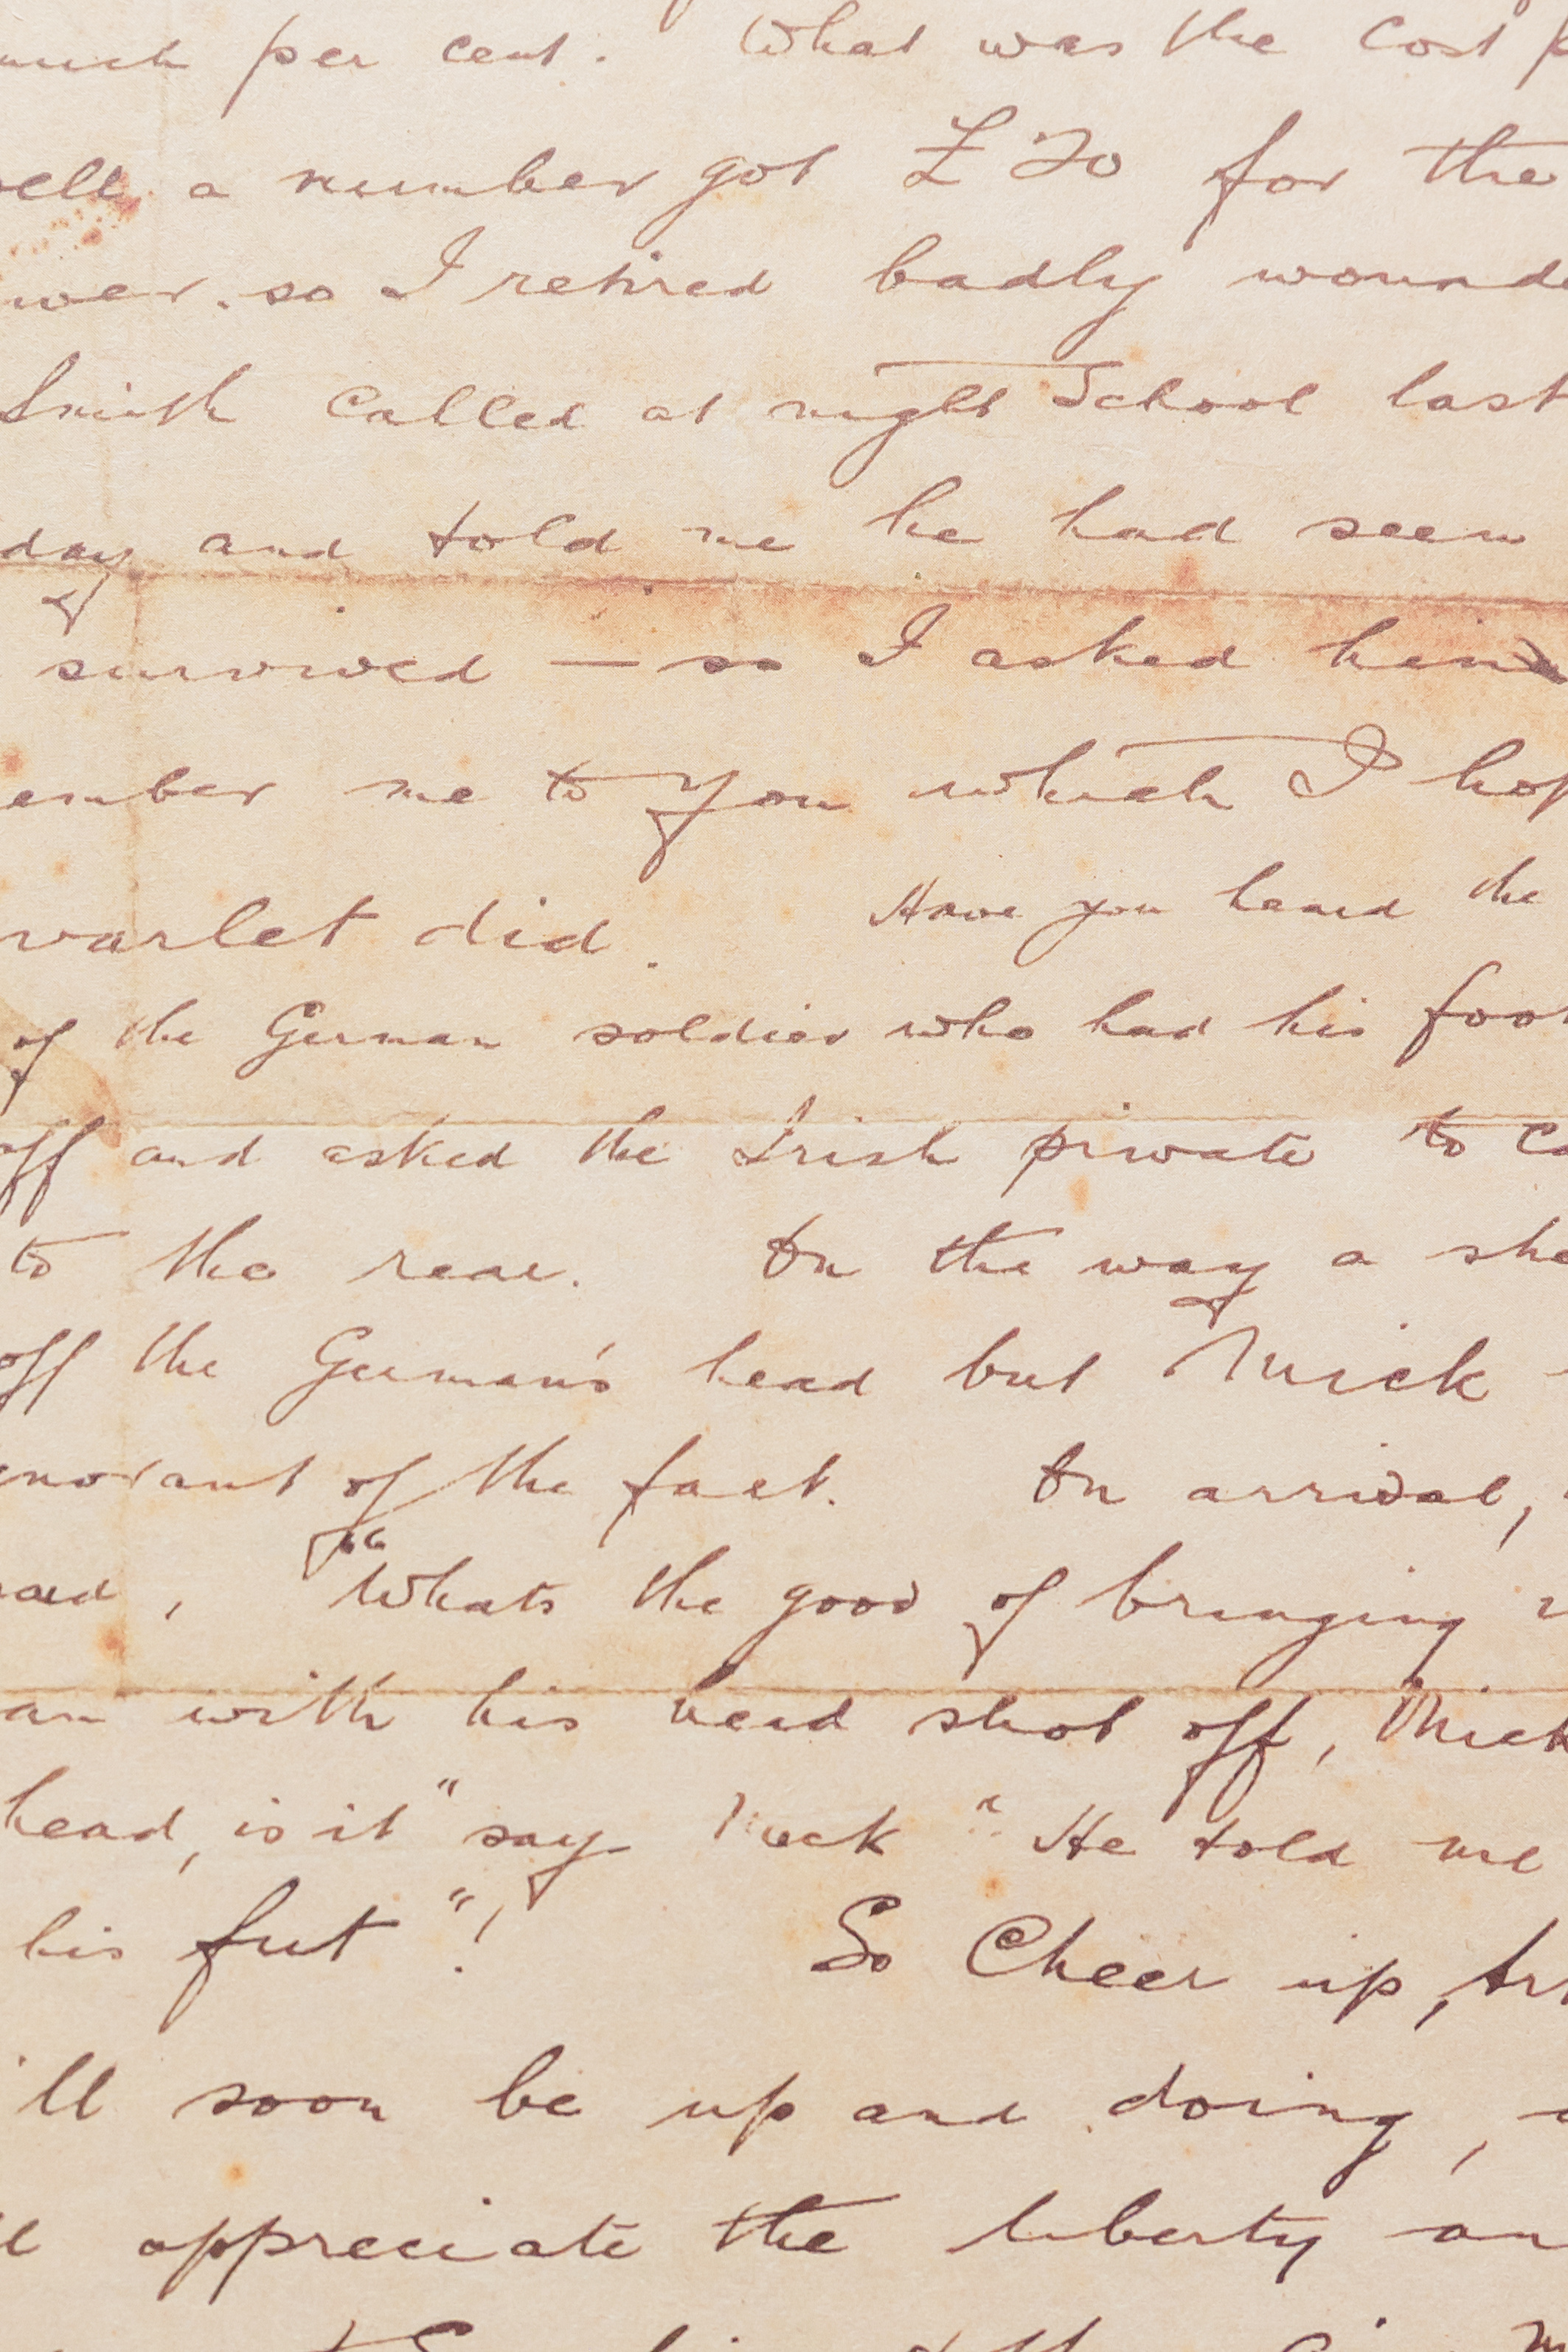 much per cent. What was the Cost p
well a number got £20 for the
wer. so I retired badly wounde
Smith called at night School last
day and told me he had seen
survived — so I asked him
ember me to you which I hop
varlet did. Have you heard the
of the German soldier who had his foot
off and asked the Irish private to ca
to the rear. On the way a she
off the German's head but Mick
gnorant of the fact. On arrival,
said, "Whats the good of bringing
an with his head shot off, Mick
head, is it" say Mick "He told me
his fut"! So Cheer up, Art
'll soon be up and doing,
ll appreciate the liberty an